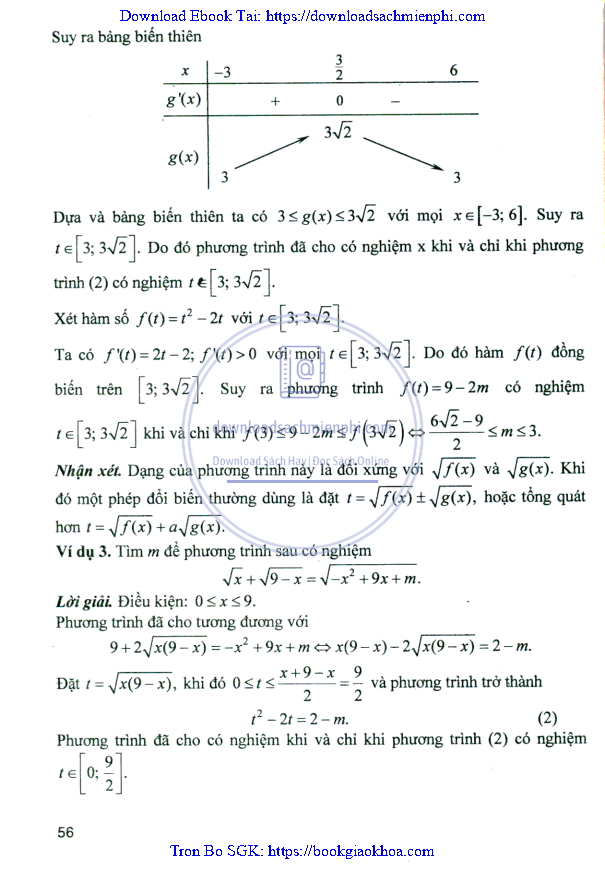 Download Ebook Tai: https://downloadsachmienphi.com
Suy ra bảng biến thiên
x −3 3/2 6
g'(x) + 0 −
g(x) 3 3√2 3
Dựa và bảng biến thiên ta có 3 ≤ g(x) ≤ 3√2 với mọi x ∈ [−3; 6]. Suy ra
t ∈ [3; 3√2]. Do đó phương trình đã cho có nghiệm x khi và chỉ khi phương
trình (2) có nghiệm t ∈ [3; 3√2].
Xét hàm số f(t) = t² − 2t với t ∈ [3; 3√2].
Ta có f'(t) = 2t − 2; f'(t) > 0 với mọi t ∈ [3; 3√2]. Do đó hàm f(t) đồng
biến trên [3; 3√2]. Suy ra phương trình f(t) = 9 − 2m có nghiệm
t ∈ [3; 3√2] khi và chỉ khi f(3) ≤ 9 − 2m ≤ f(3√2) ⇔ (6√2 − 9)/2 ≤ m ≤ 3.
downloadsachmienphi.com
Download Sách Hay | Đọc Sách Online
Nhận xét. Dạng của phương trình này là đối xứng với √f(x) và √g(x). Khi
đó một phép đổi biến thường dùng là đặt t = √f(x) ± √g(x), hoặc tổng quát
hơn t = √f(x) + a√g(x).
Ví dụ 3. Tìm m để phương trình sau có nghiệm
√x + √(9 − x) = √(−x² + 9x + m).
Lời giải. Điều kiện: 0 ≤ x ≤ 9.
Phương trình đã cho tương đương với
9 + 2√(x(9 − x)) = −x² + 9x + m ⇔ x(9 − x) − 2√(x(9 − x)) = 2 − m.
Đặt t = √(x(9 − x)), khi đó 0 ≤ t ≤ (x + 9 − x)/2 = 9/2 và phương trình trở thành
t² − 2t = 2 − m. (2)
Phương trình đã cho có nghiệm khi và chỉ khi phương trình (2) có nghiệm
t ∈ [0; 9/2].
56
Tron Bo SGK: https://bookgiaokhoa.com